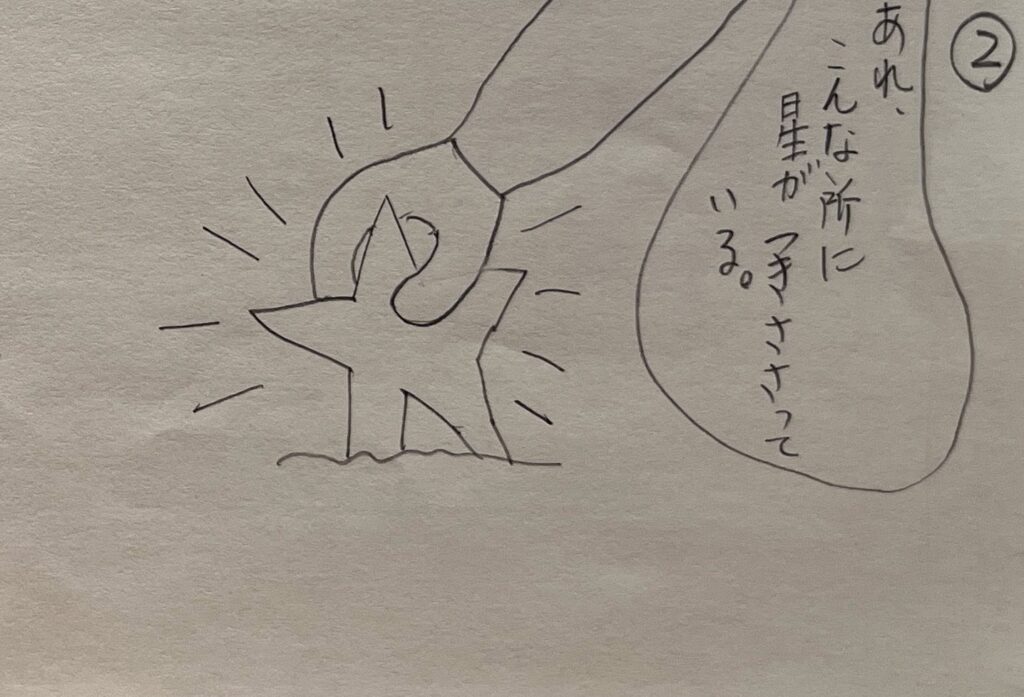 ②
あれ、
こんな所に
星が つきささって
いる。